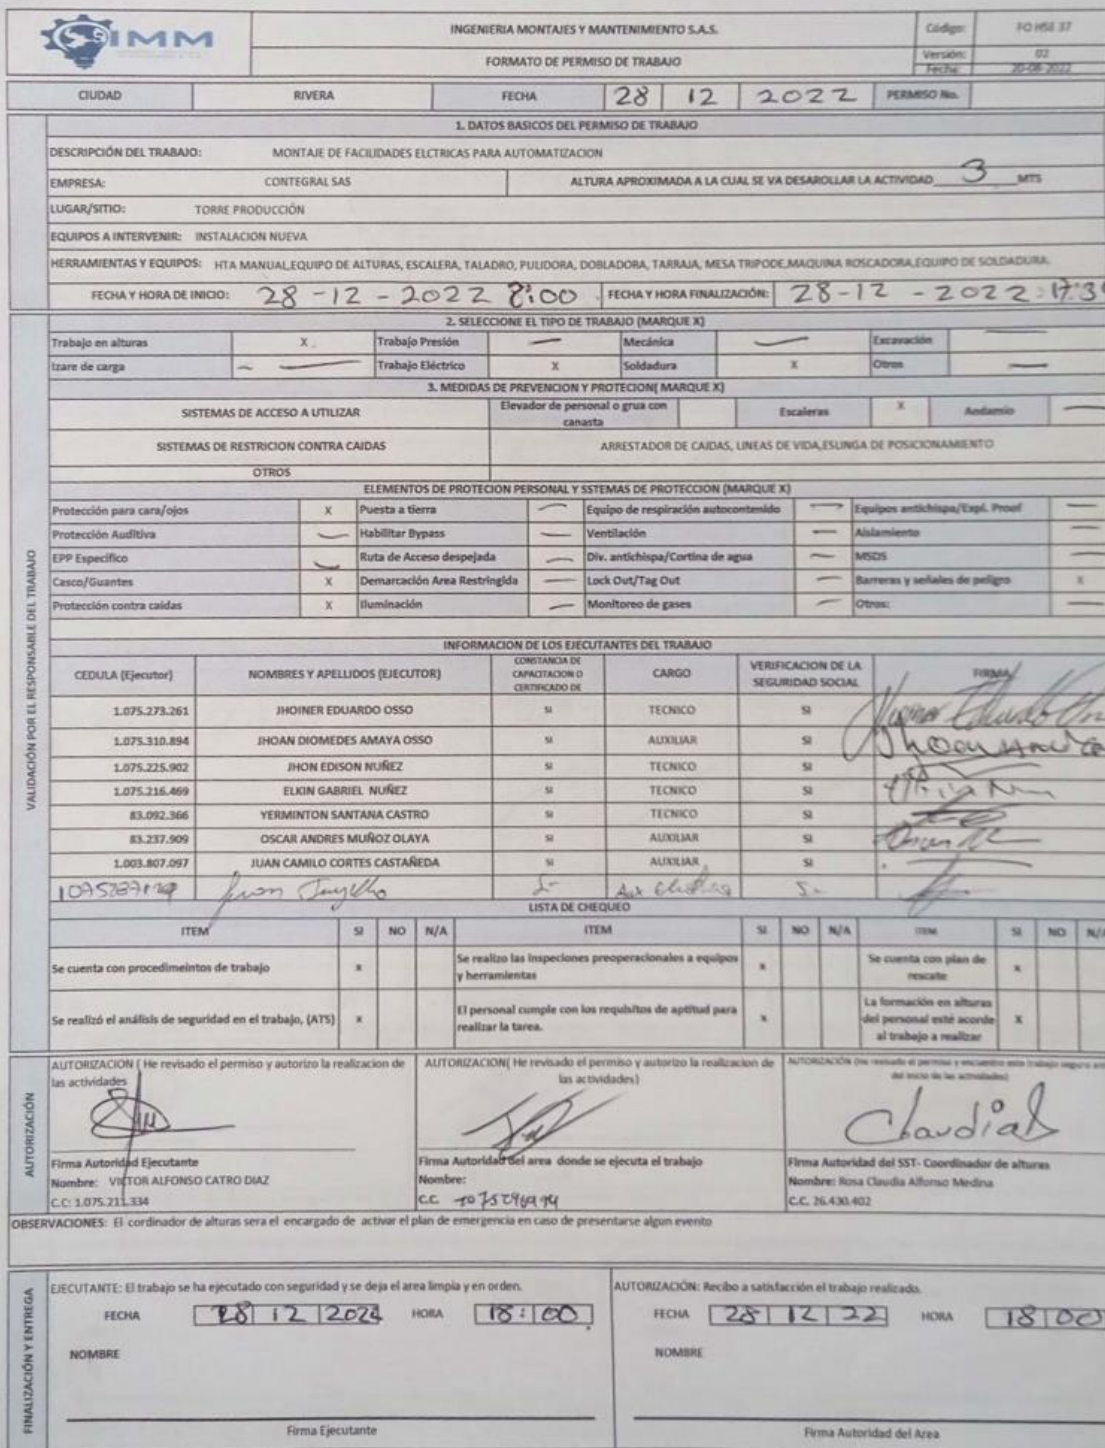 SIMM
INGENIERIA MONTAJES Y MANTENIMIENTO S.A.S.
Código: FO HSE 37
FORMATO DE PERMISO DE TRABAJO
Versión: 02
Fecha: 20-08-2022
CIUDAD RIVERA FECHA 28 12 2022 PERMISO No.
1. DATOS BASICOS DEL PERMISO DE TRABAJO
DESCRIPCIÓN DEL TRABAJO: MONTAJE DE FACILIDADES ELCTRICAS PARA AUTOMATIZACION
EMPRESA: CONTEGRAL SAS ALTURA APROXIMADA A LA CUAL SE VA DESAROLLAR LA ACTIVIDAD 3 MTS
LUGAR/SITIO: TORRE PRODUCCIÓN
EQUIPOS A INTERVENIR: INSTALACION NUEVA
HERRAMIENTAS Y EQUIPOS: HTA MANUAL,EQUIPO DE ALTURAS, ESCALERA, TALADRO, PULIDORA, DOBLADORA, TARRAJA, MESA TRIPODE,MAQUINA ROSCADORA,EQUIPO DE SOLDADURA.
FECHA Y HORA DE INICIO: 28-12-2022 8:00 FECHA Y HORA FINALIZACIÓN: 28-12-2022 17:3
VALIDACIÓN POR EL RESPONSABLE DEL TRABAJO
2. SELECCIONE EL TIPO DE TRABAJO (MARQUE X)
Trabajo en alturas X Trabajo Presión — Mecánica — Excavación —
Izare de carga — Trabajo Eléctrico X Soldadura X Otros —
3. MEDIDAS DE PREVENCION Y PROTECION( MARQUE X)
SISTEMAS DE ACCESO A UTILIZAR Elevador de personal o grua con canasta Escaleras X Andamio —
SISTEMAS DE RESTRICION CONTRA CAIDAS ARRESTADOR DE CAIDAS, LINEAS DE VIDA,ESLINGA DE POSICIONAMIENTO
OTROS
ELEMENTOS DE PROTECION PERSONAL Y SSTEMAS DE PROTECCION (MARQUE X)
Protección para cara/ojos X Puesta a tierra — Equipo de respiración autocontenido — Equipos antichispa/Expl. Proof —
Protección Auditiva — Habilitar Bypass — Ventilación — Aislamiento —
EPP Específico — Ruta de Acceso despejada — Div. antichispa/Cortina de agua — MSDS —
Casco/Guantes X Demarcación Area Restringida — Lock Out/Tag Out — Barreras y señales de peligro X
Protección contra caidas X Iluminación — Monitoreo de gases — Otros: —
INFORMACION DE LOS EJECUTANTES DEL TRABAJO
CEDULA (Ejecutor) NOMBRES Y APELLIDOS (EJECUTOR) CONSTANCIA DE CAPACITACION O CERTIFICADO DE CARGO VERIFICACION DE LA SEGURIDAD SOCIAL FIRMA
1.075.273.261 JHOINER EDUARDO OSSO SI TECNICO SI
1.075.310.894 JHOAN DIOMEDES AMAYA OSSO SI AUXILIAR SI
1.075.225.902 JHON EDISON NUÑEZ SI TECNICO SI
1.075.216.469 ELKIN GABRIEL NUÑEZ SI TECNICO SI
83.092.366 YERMINTON SANTANA CASTRO SI TECNICO SI
83.237.909 OSCAR ANDRES MUÑOZ OLAYA SI AUXILIAR SI
1.003.807.097 JUAN CAMILO CORTES CASTAÑEDA SI AUXILIAR SI
Aux
LISTA DE CHEQUEO
ITEM SI NO N/A ITEM SI NO N/A ITEM SI NO N/A
Se cuenta con procedimeintos de trabajo x Se realizo las inspeciones preoperacionales a equipos y herramientas x Se cuenta con plan de rescate x
Se realizó el análisis de seguridad en el trabajo, (ATS) x El personal cumple con los requisitos de aptitud para realizar la tarea. x La formación en alturas del personal esté acorde al trabajo a realizar X
AUTORIZACIÓN
AUTORIZACION ( He revisado el permiso y autorizo la realizacion de las actividades
AUTORIZACION( He revisado el permiso y autorizo la realizacion de las actividades)
AUTORIZACIÓN (He revisado el permiso y encuentro este trabajo seguro
del inicio de las actividades)
Claudia
Firma Autoridad Ejecutante
Nombre: VICTOR ALFONSO CATRO DIAZ
C.C: 1.075.211.334
Firma Autoridad del area donde se ejecuta el trabajo
Nombre:
C.C.
Firma Autoridad del SST- Coordinador de alturas
Nombre: Rosa Claudia Alfonso Medina
C.C. 26.430.402
OBSERVACIONES: El cordinador de alturas sera el encargado de activar el plan de emergencia en caso de presentarse algun evento
FINALIZACIÓN Y ENTREGA
EJECUTANTE: El trabajo se ha ejecutado con seguridad y se deja el area limpia y en orden.
FECHA 28 12 2024 HORA 18:00
NOMBRE
Firma Ejecutante
AUTORIZACIÓN: Recibo a satisfacción el trabajo realizado.
FECHA 28 12 22 HORA 18 00
NOMBRE
Firma Autoridad del Area